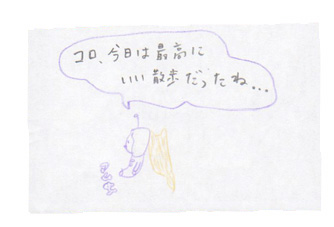 コロ、今日は最高に
いい散歩だったね...